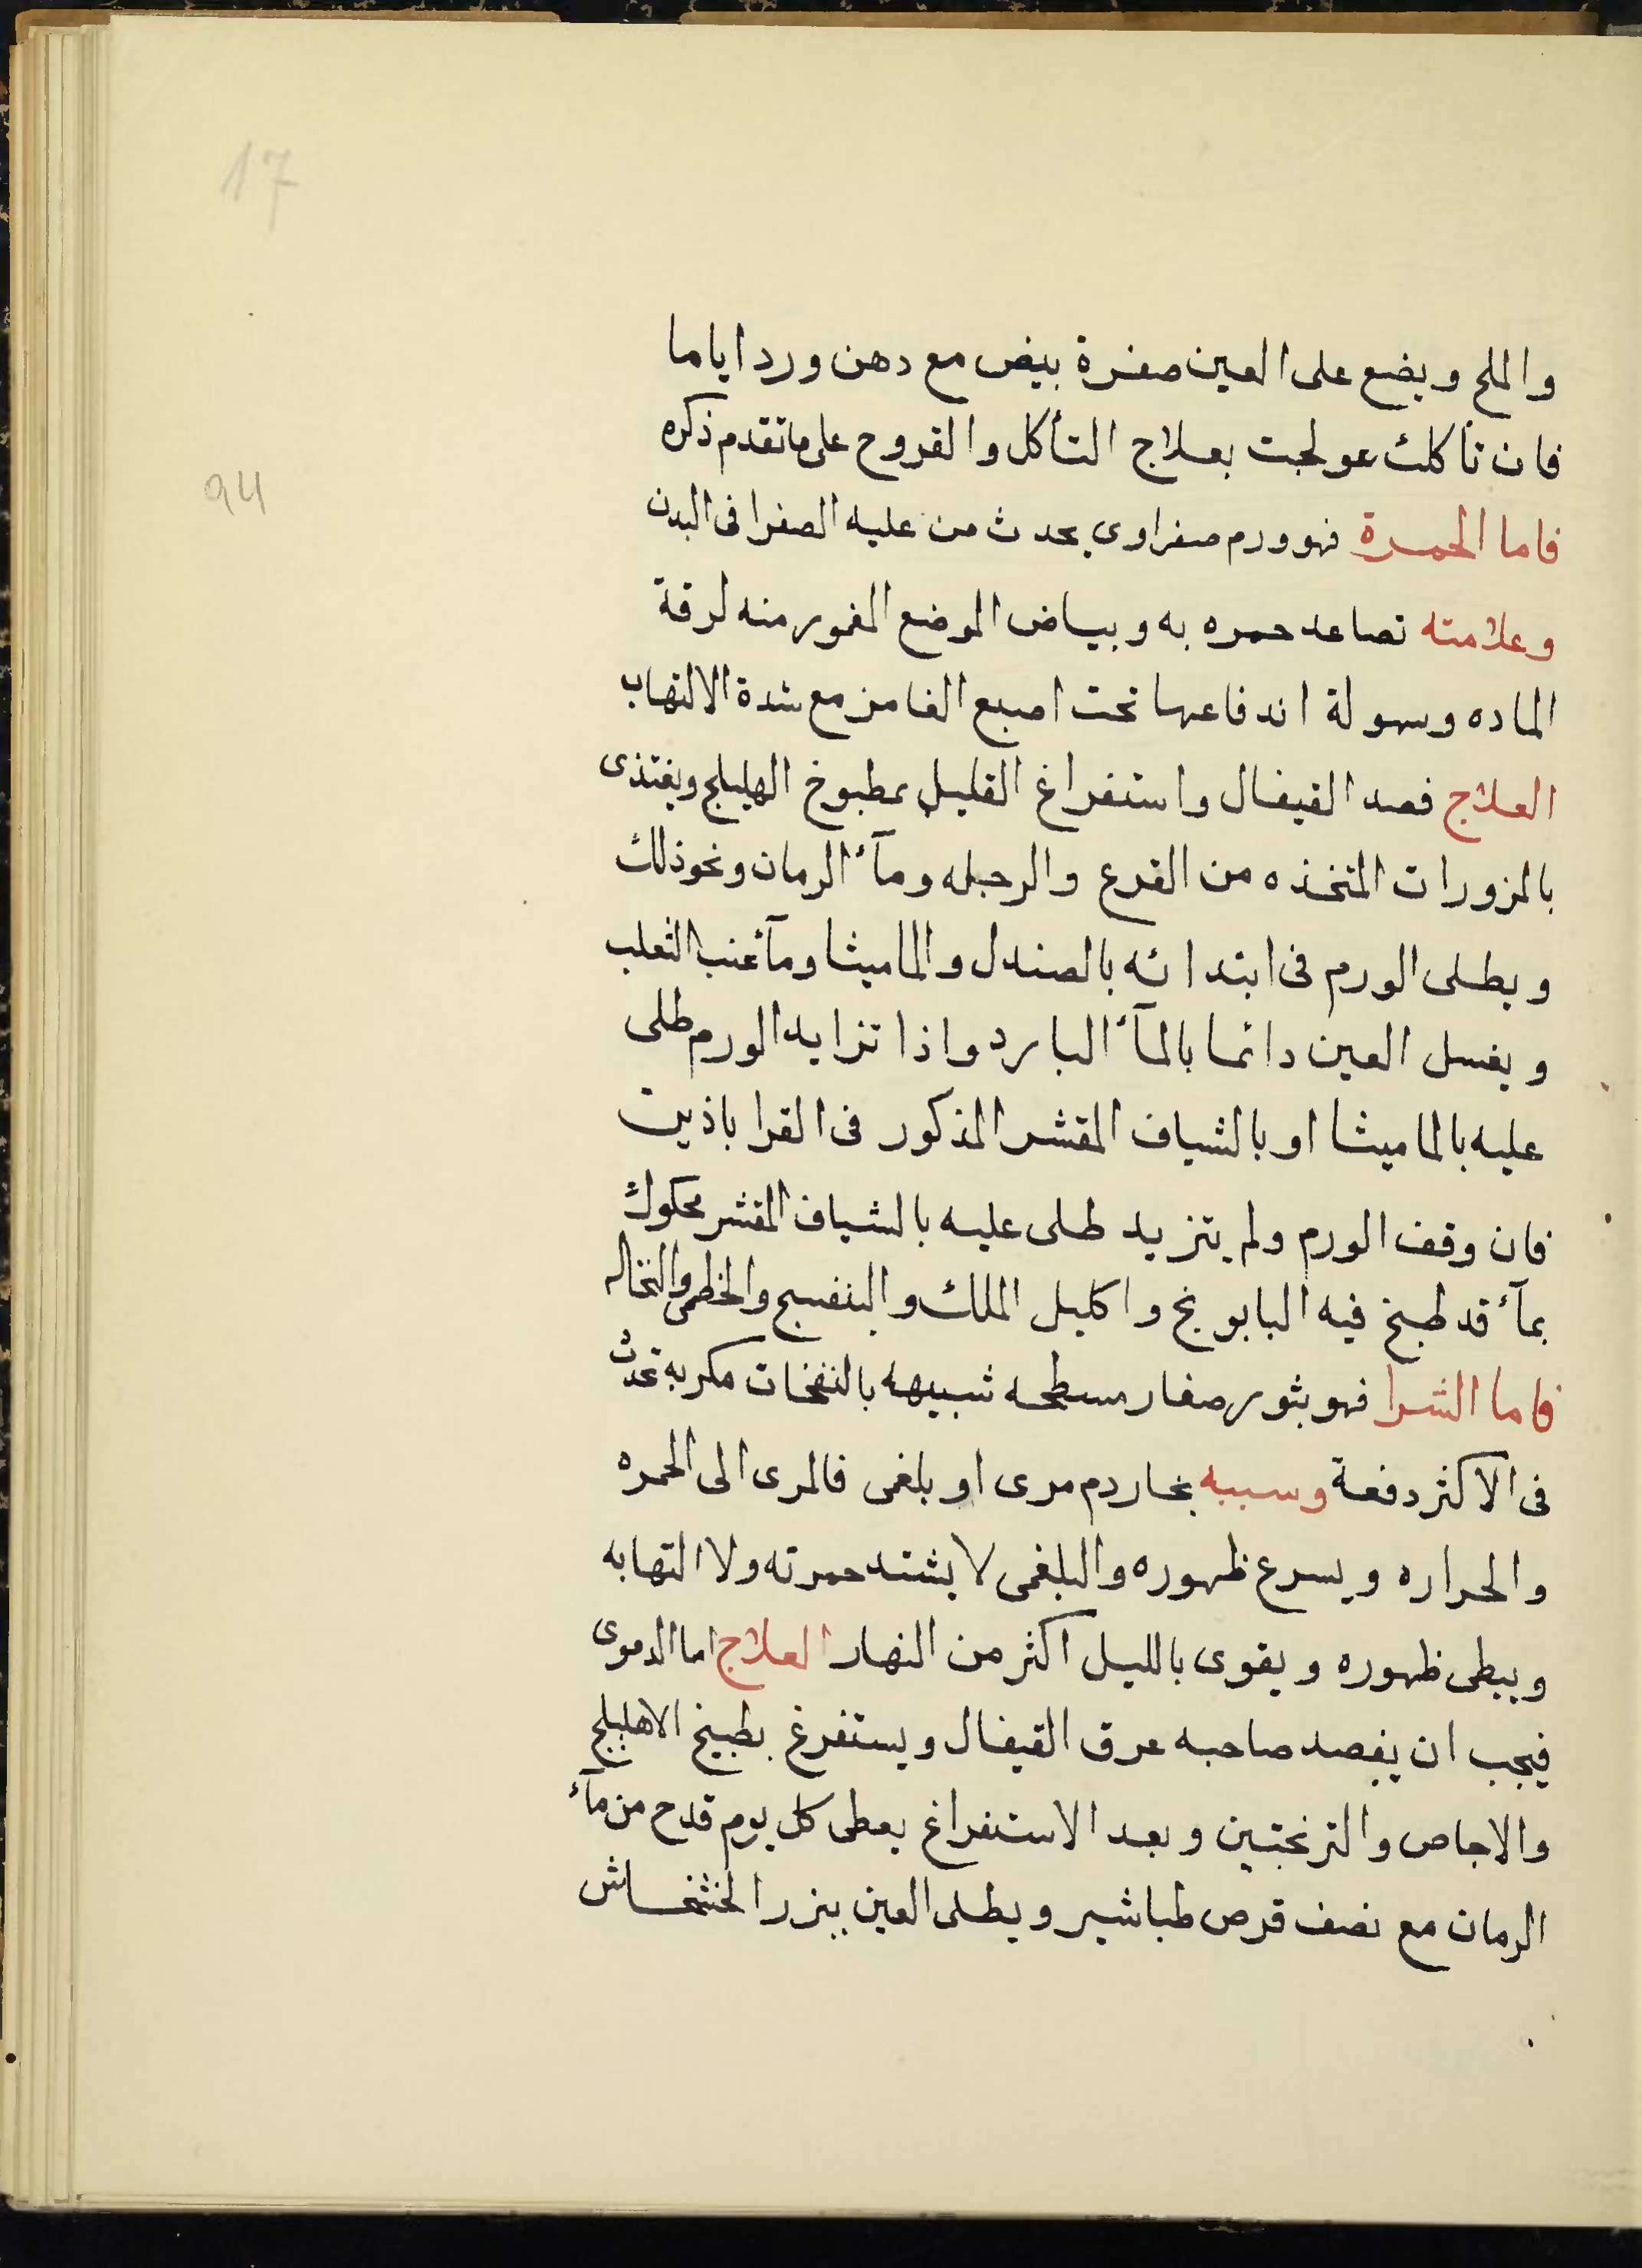 17
94
والملح ويضع على العين صفرة بيض مع دهن ورد اياما
فان تأكلت عولجت بعلاج التأكل والقروح على ماتقدم ذكره
فاما الحمرة فهو ورم صفراوى يحدث من عليه الصفرا فى البدن
وعلامته تصاعد حمره به وبياض الموضع المغمور منه لرقة
الماده وسهولة اندفاعها تحت اصبع الغامز مع شدة الالتهاب
العلاج فصد القيفال واستفراغ القليل بمطبوخ الهليلج ويغتذى
بالمزورات المتخذه من القرع والرجله ومآء الرمان ونحوذلك
ويطلى الورم فى ابتدائه بالصندل والماميثا ومآء عنب الثعلب
ويغسل العين دائما بالمآء البارد واذا تزايد الورم طلى
عليه بالماميثا او بالشياف المقشر المذكور فى القراباذين
فان وقف الورم ولم يتزيد طلى عليه بالشياف المقشر محكوك
بمآء قد طبخ فيه البابونج واكليل الملك والبنفسج والخطمى والنخاله
فاما الشرا فهو بثور صغار مسطحه شبيهه بالنفخات مكربه تحدث
فى الاكثر دفعة وسببه بخار دم مرى او بلغمى فالمرى الى الحمره
والحراره ويسرع ظهوره والبلغمى لا يشتد حمرته ولا التهابه
ويبطى ظهوره ويقوى بالليل اكثر من النهار العلاج اما الدموى
فيجب ان يفصد صاحبه عرق القيفال ويستفرغ بطبيخ الاهليلج
والاجاص والترنجبين وبعد الاستفراغ يعطى كل يوم قدح من مآء
الرمان مع نصف قرص طباشير ويطلى العين ببزر الخشخاش